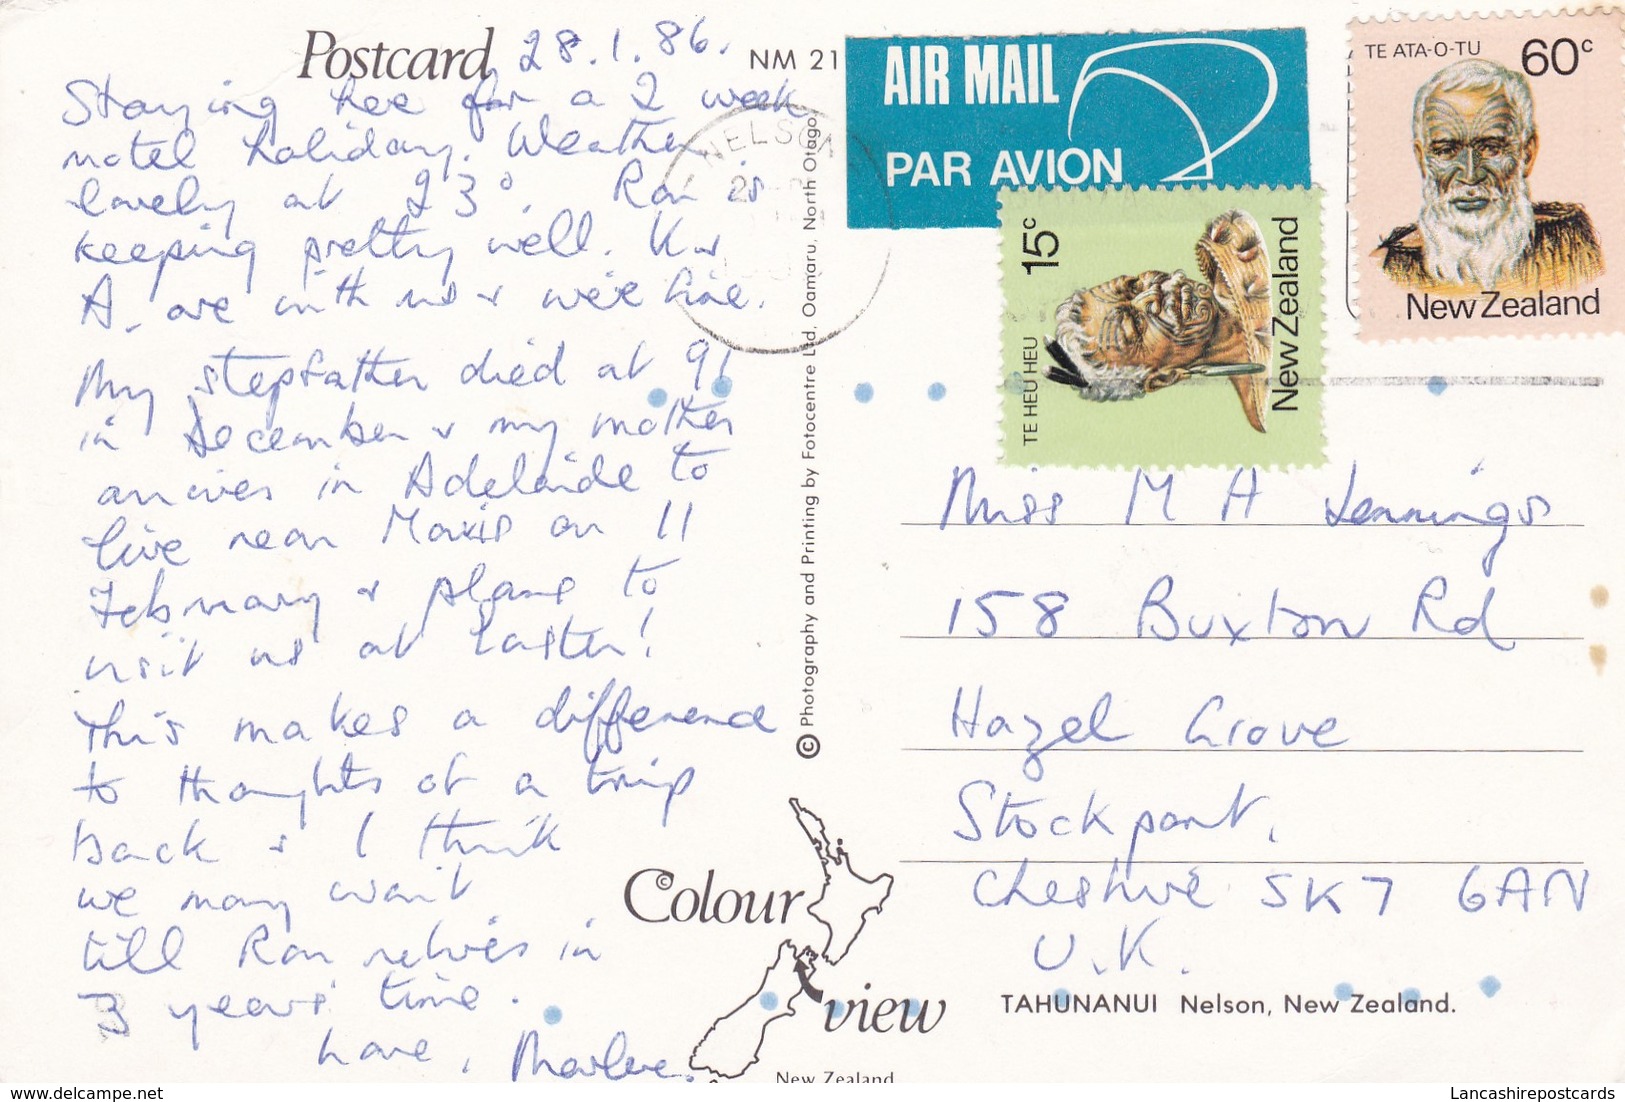 Postcard
28.1.86.
NM 21
Staying here for a 2 week
motel holiday. Weather
lovely at 23°. Ron is
keeping pretty well. K &
A. are with us & we're fine.
My stepfather died at 91
in December & my mother
arrives in Adelaide to
live near Mavis on 11
February & plans to
visit us at Easter!
This makes a difference
to thoughts of a trip
back & I think
we may wait
till Ron retires in
3 years' time.
Love,
AIR MAIL
PAR AVION
NELSON
TE ATA-O-TU 60c
New Zealand
15c
TE HEU HEU
New Zealand
© Photography and Printing by Fotocentre Ltd, Oamaru, North Otago.
Miss M A Jennings
158 Buxton Rd
Hazel Grove
Stockport,
Cheshire SK7 6AN
U.K.
Colour ©
view
TAHUNANUI Nelson, New Zealand.
New Zealand
Lancashirepostcards